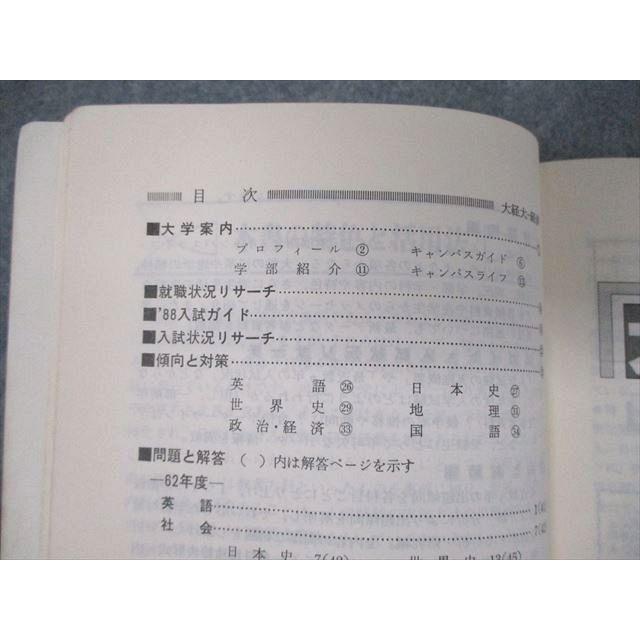 目 次
大経大―経済
■大学案内
プロフィール② キャンパスガイド⑥
学部紹介⑪ キャンパスライフ⑬
■就職状況リサーチ
■'88入試ガイド
■入試状況リサーチ
■傾向と対策
英 語㉖ 日 本 史㉗
世 界 史㉙ 地 理㉛
政治・経済㉝ 国 語㉞
■問題と解答 ( )内は解答ページを示す
―62年度―
英 語
社 会
日 本 史 7(42) 世 界 史 13(45)